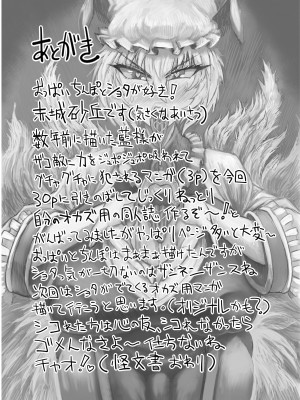 あとがき
おっぱいちんぽとショタが好き!
赤城砂丘です(気さくなあいさつ)
数年前に描いた藍様が
力をジュポジュポ吸われて
グチャグチャに犯されるマンガ(3p)を今回
30pに引きのばしてじっくりねっとり
自分のオカズ用の同人誌作るぞ〜!!と
がんばってみましたがやっぱりページ多いと大変〜
おっぱいとちんぽはまぁまぁ描けたんですが
ショタっ気が一ミリもないのはザンネンザンスね
次回はショタがでてくるオカズ用マンガ
描いてイこうと思います・(オリジナルかも?)
シコれた方は心の友、シコれなかったら
ゴメンなさよ〜 仕方ないね
チャオ!!(怪文書おわり)